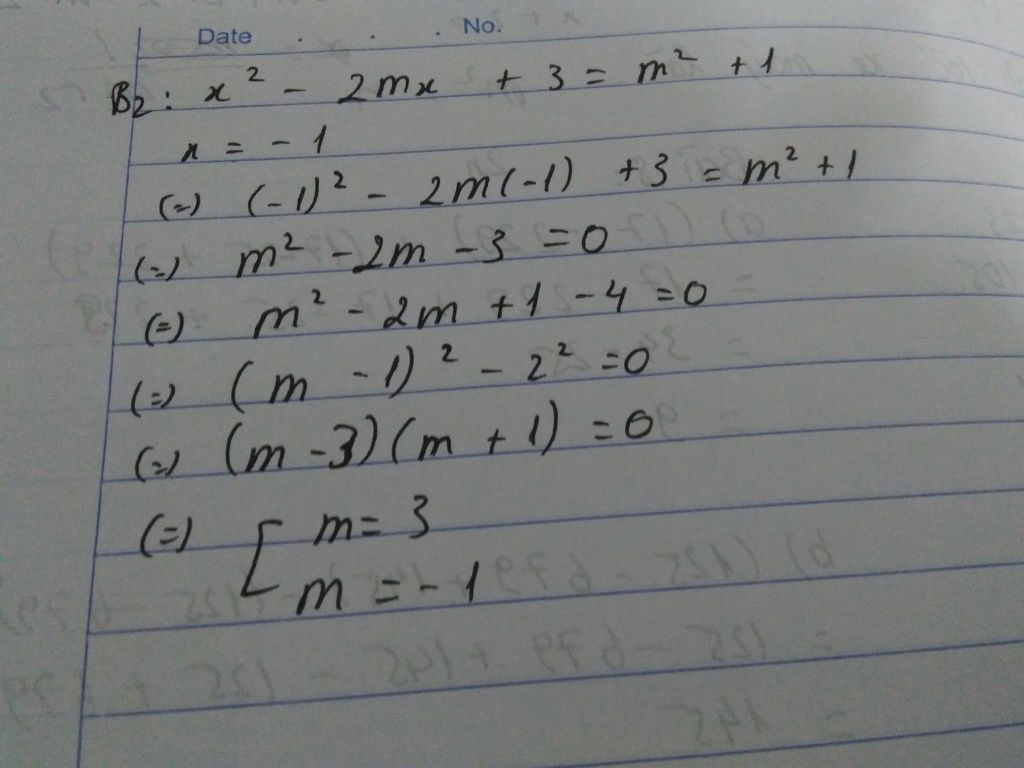 Date . . . No.
B2: x² - 2mx + 3 = m² + 1
x = -1
(=) (-1)² - 2m(-1) + 3 = m² + 1
(=) m² - 2m - 3 = 0
(=) m² - 2m + 1 - 4 = 0
(=) (m - 1)² - 2² = 0
(=) (m - 3)(m + 1) = 0
(=) [ m = 3
m = -1